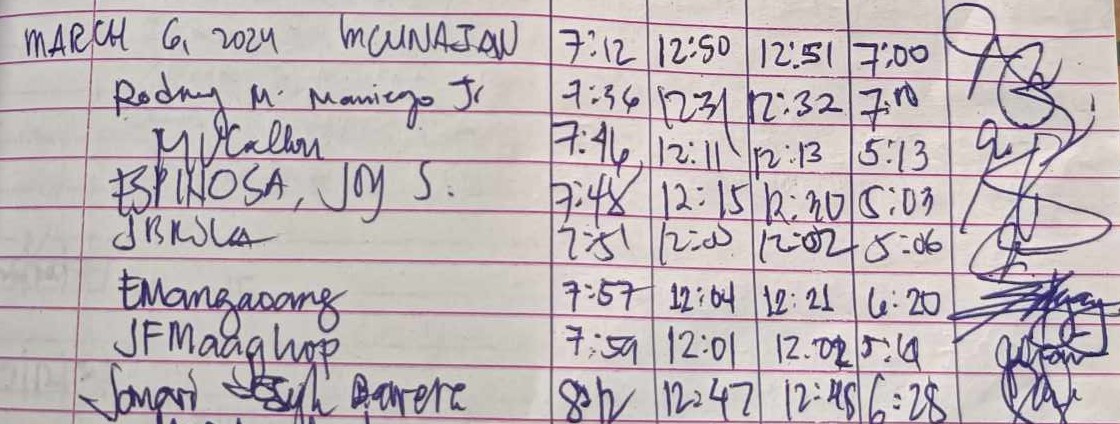 MARCH 6, 2024 MCUNAJAN 7:12 12:50 12:51 7:00
Rodney M. Maniego Jr 7:34 12:31 12:32 7:10
7:46 12:11 12:13 5:13
ESPINOSA, JOY S. 7:48 12:15 12:30 5:03
7:51 12:00 12:02 5:06
EMangaoang 7:57 12:04 12:21 6:20
JFMaaghop 7:59 12:01 12:02
Jomari Barrera 8:12 12:47 12:48 6:28